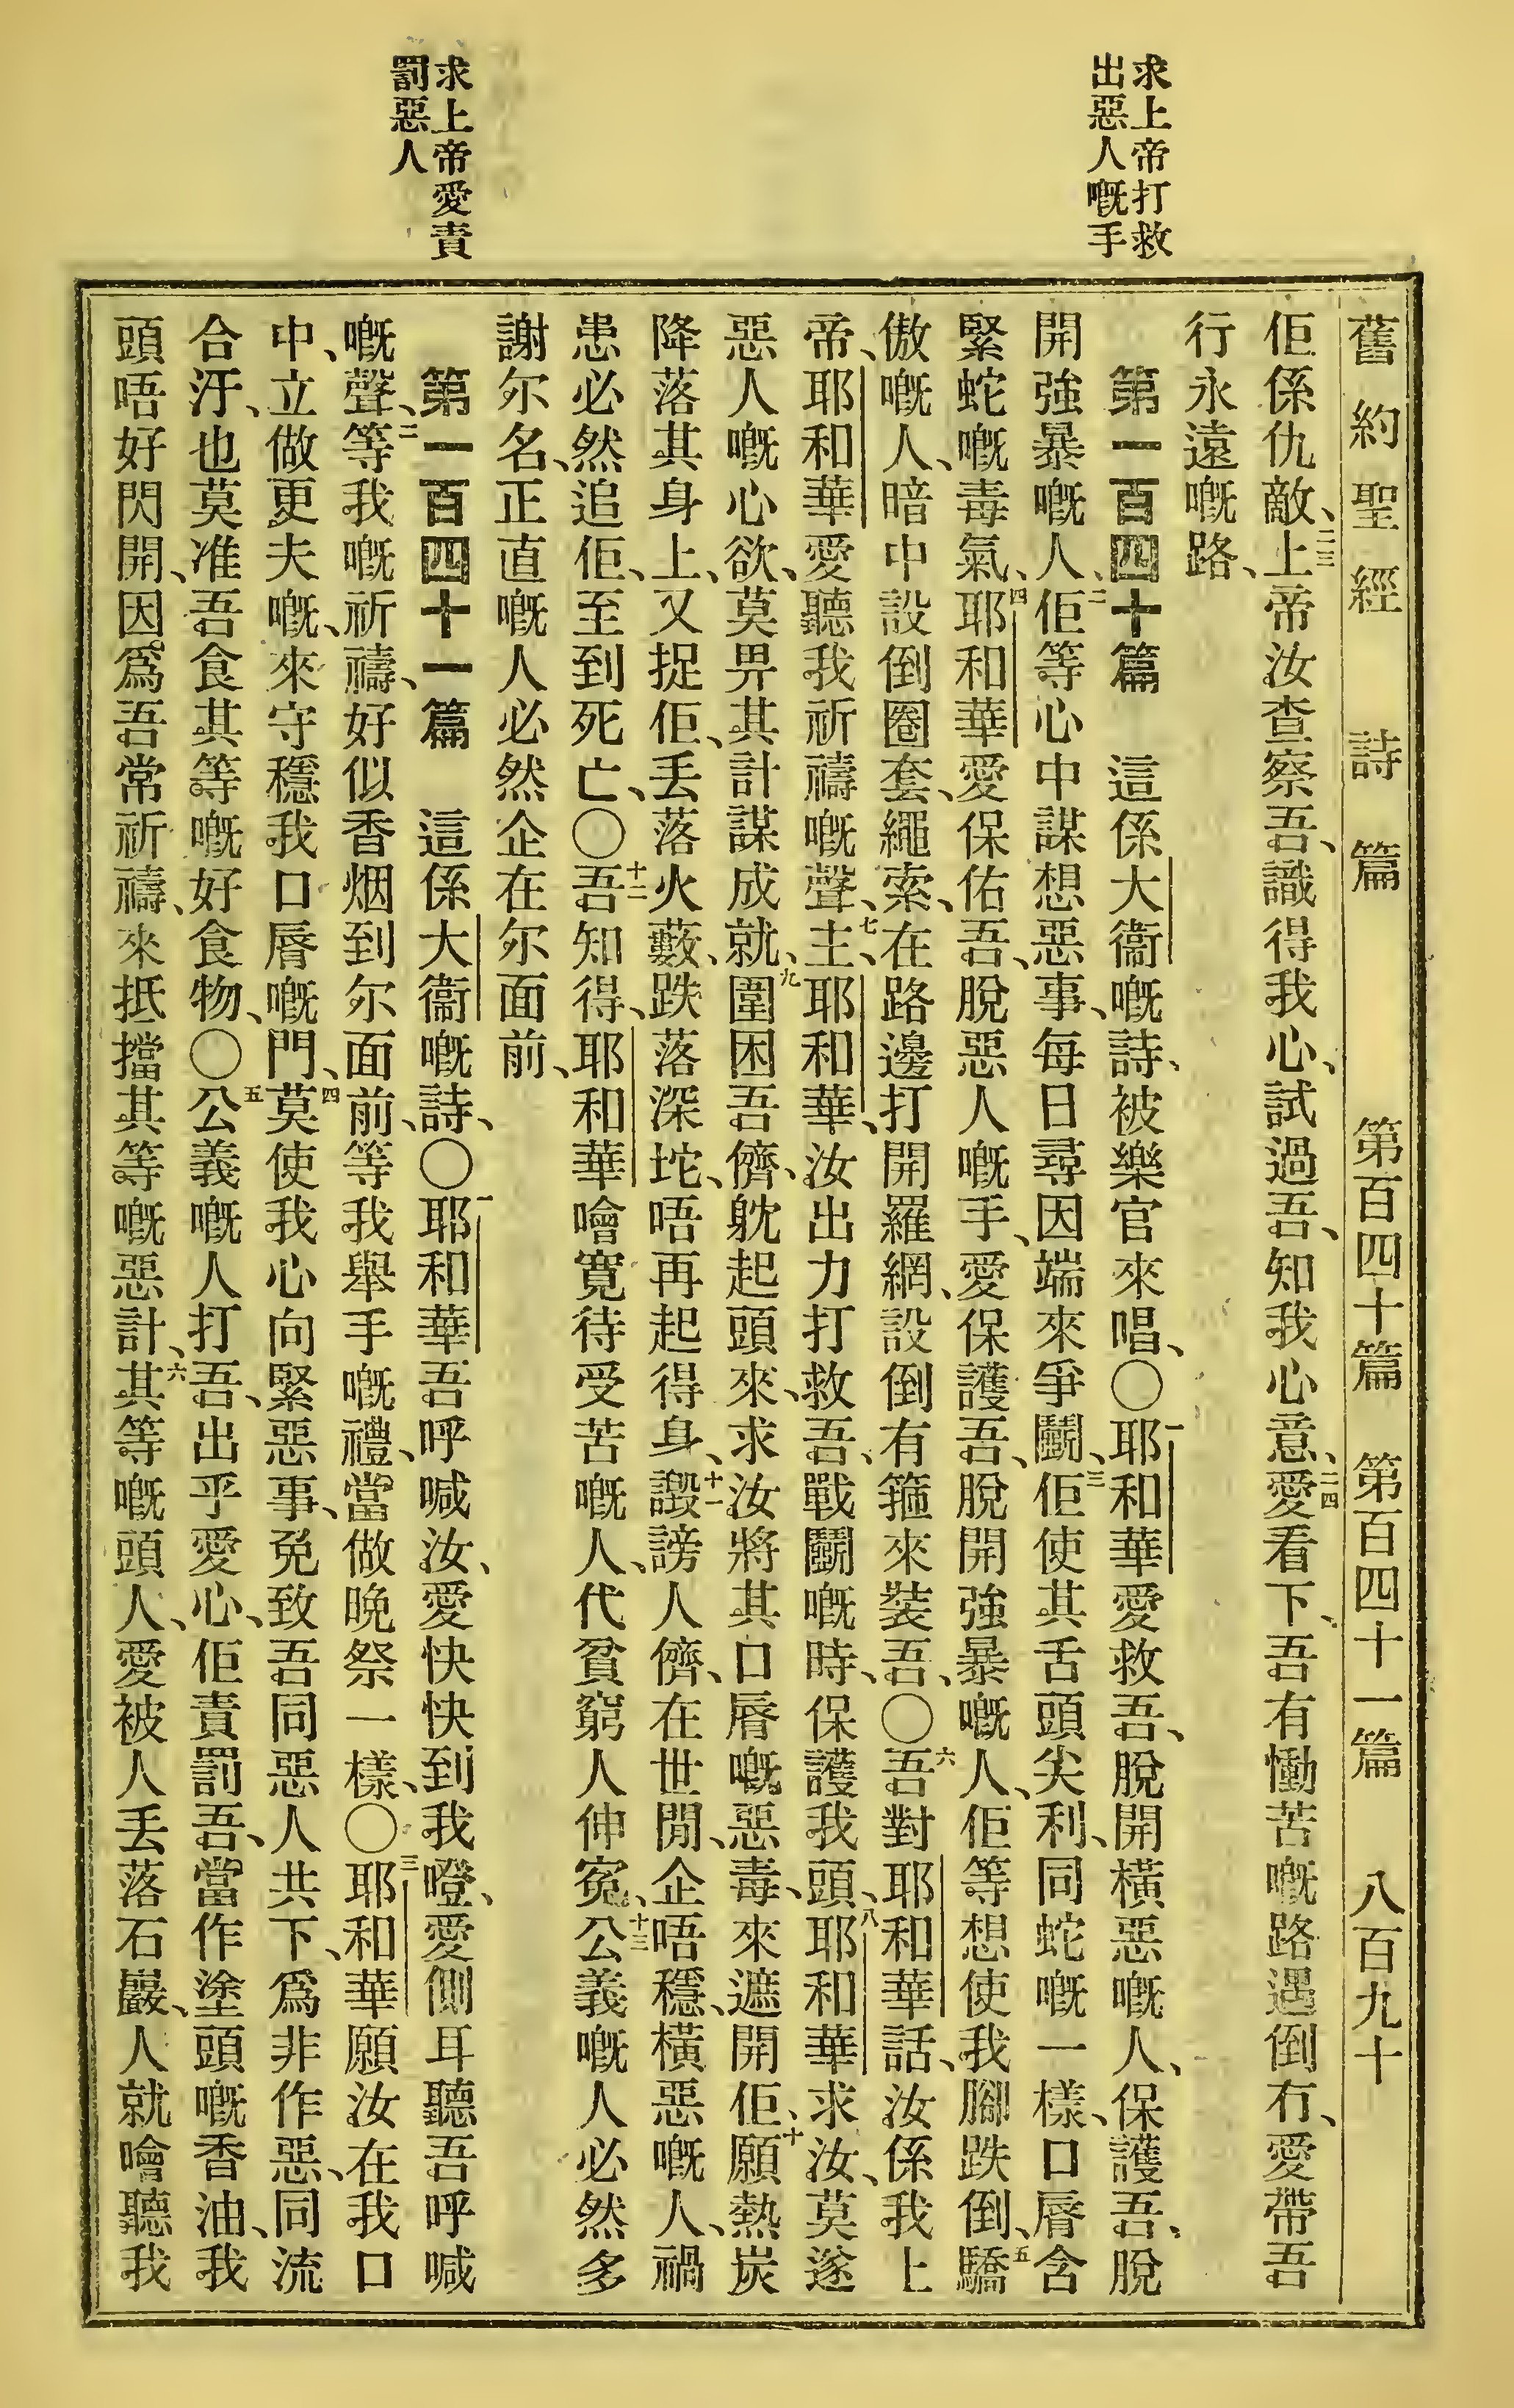 舊約聖經 詩篇 第百四十篇 第百四十一篇 八百九十
求上帝打救
出惡人嘅手
求上帝愛責
罰惡人
佢係仇敵、二三上帝汝查察吾、識得我心、試過吾、知我心意、二四愛看下、吾有慟苦嘅路遇倒冇、愛帶吾
行永遠嘅路、
第一百四十篇 這係大衞嘅詩、被樂官來唱、〇一耶和華愛救吾、脫開橫惡嘅人、保護吾、脫
開強暴嘅人、二佢等心中謀想惡事、每日尋因端來爭鬬、三佢使其舌頭尖利、同蛇嘅一樣、口脣含
緊蛇嘅毒氣、四耶和華愛保佑吾、脫惡人嘅手、愛保護吾、脫開強暴嘅人、佢等想使我腳跌倒、五驕
傲嘅人、暗中設倒圈套、繩索、在路邊打開羅網、設倒有箍來裝吾、〇六吾對耶和華話、汝係我上
帝、耶和華愛聽我祈禱嘅聲、七主、耶和華、汝出力打救吾、戰鬬嘅時、保護我頭、八耶和華求汝、莫遂
惡人嘅心欲、莫畀其計謀成就、九圍困吾儕、躭起頭來、求汝將其口脣嘅惡毒、來遮開佢、十願熱炭
降落其身上、又捉佢、丢落火藪、跌落深坨、唔再起得身、十一譭謗人儕、在世間、企唔穩、橫惡嘅人、禍
患必然追佢、至到死亡、〇十二吾知得、耶和華噲寬待受苦嘅人、代貧窮人伸寃、十三公義嘅人必然多
謝尔名、正直嘅人必然企在尔面前、
第一百四十一篇 這係大衞嘅詩、〇一耶和華吾呼喊汝、愛快快到我嶝、愛側耳聽吾呼喊
嘅聲、二等我嘅祈禱、好似香烟到尔面前、等我舉手嘅禮、當做晚祭一樣、〇三耶和華願汝在我口
中、立做更夫嘅、來守穩我口脣嘅門、四莫使我心向緊惡事、免致吾同惡人共下、爲非作惡、同流
合汙、也莫准吾食其等嘅好食物、〇五公義嘅人打吾、出乎愛心、佢責罰吾、當作塗頭嘅香油、我
頭唔好閃開、因爲吾常祈禱、來抵擋其等嘅惡計、六其等嘅頭人、愛被人丢落石巖、人就噲聽我